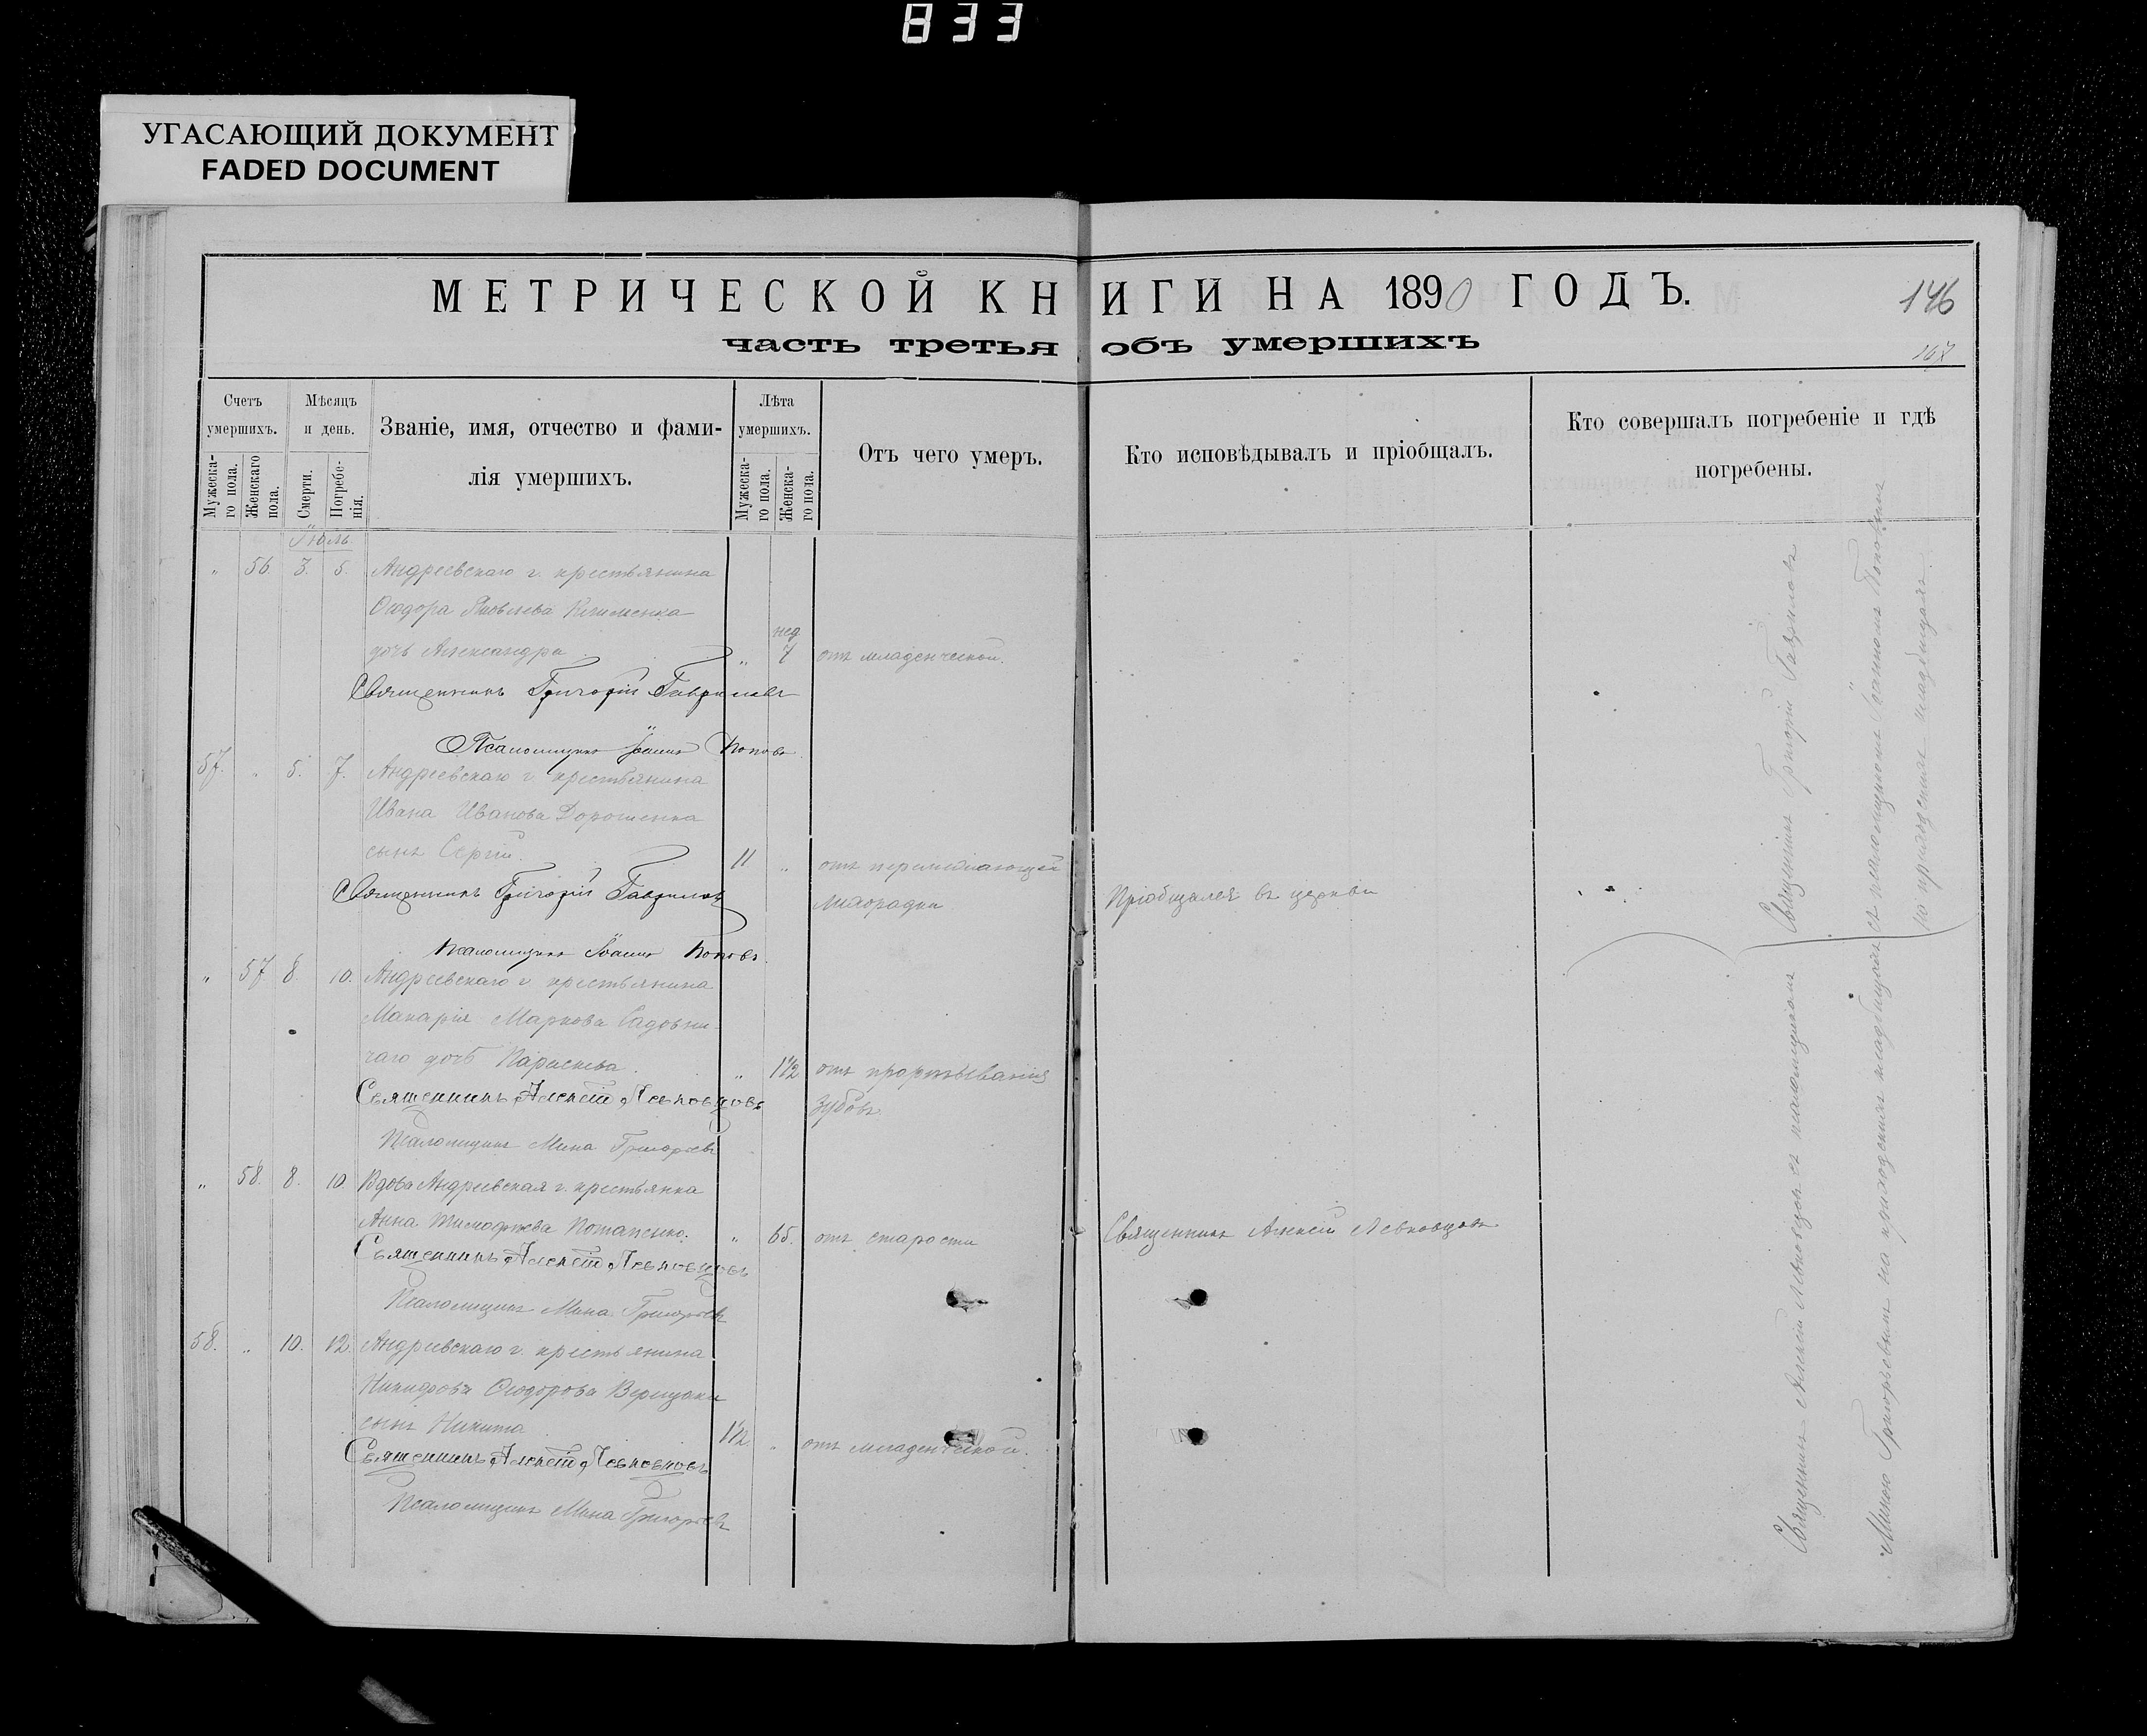 833
УГАСАЮЩИЙ ДОКУМЕНТ
FADED DOCUMENT
МЕТРИЧЕСКОЙ КНИГИ НА 1890 ГОДЪ.
146
часть третья объ умершихъ
Счетъ умершихъ.
Мѣсяцъ и день.
Званіе, имя, отчество и фами-
лія умершихъ.
Лѣта умершихъ.
Отъ чего умеръ.
Кто исповѣдывалъ и пріобщалъ.
Кто совершалъ погребеніе и гдѣ
погребены.
Мужеска-го пола.
Женскаго пола.
Смерти.
Погребе-нія.
Мужеска-го пола.
Женска-го пола.
Іюль
" 56 3. 5. Андреевскаго г. крестьянина
Ѳеодора Яковлева
нед.
дочь Александра " 7 отъ младенческой.
Священникъ Григорій Гавриловъ
Псаломщикъ Іоаннъ Поповъ
57. " 5. 7. Андреевскаго г. крестьянина
Ивана Иванова Дорошенка
сынъ Сергій. 11 " отъ перемежающей
Священникъ Григорій Гавриловъ лихорадки Пріобщался въ церкви
Псаломщикъ Іоаннъ Поповъ.
" 57 8 10. Андреевскаго г. крестьянина
Макарія Маркова Садовни-
чаго дочь Параскева. " 1 1/2 отъ прорѣзыванія
Священникъ Алексій Левковцовъ зубовъ.
Псаломщикъ Мина Григорьевъ
" 58. 8. 10. Вдова Андреевская г. крестьянка
Анна Тимофѣева Потапенко. " 65. отъ старости Священникъ Алексій Левковцовъ
Священникъ Алексій Левковцовъ
Псаломщикъ Мина Григорьевъ
58. " 10. 12. Андреевскаго г. крестьянина
Никифора Ѳеодорова Верещаки
сынъ Никита 1 1/2 " отъ младенческой.
Священникъ Алексій Левковцовъ
Псаломщикъ Мина Григорьевъ
Священникъ Григорій Гавриловъ
съ псаломщикомъ Іоанномъ Поповымъ
на приходскомъ кладбищѣ.
Священникъ Алексій Левковцовъ съ псаломщикомъ
Миною Григорьевымъ на приходскомъ кладбищѣ